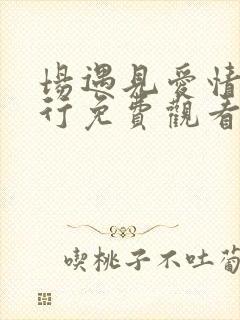 場遇見愛情
行免費觀看
喫桃子不吐葡